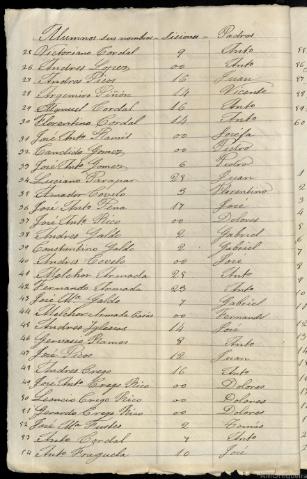 Alumnos sus nombres - Lisiones - Padres
25 Victoriano Cordal 9 Anto
26 Andres Lopez 00 Anto
27 Andres Picos 16 Juan
28 Eugenios Piñon 14 Vicente
29 Manuel Cordal 16 Anto
30 Florentino Cordal 14 Anto
31 José Anto 00 Josefa
32 Candido Gomez 00 Pedro
33 José Anto Gomez 6 Pedro
34 Luciano 28 Juan
35 Amador Covelo 3 Florentino
36 José Anto Pena 17 José
37 José Anto Rico 00 Dolores
38 Andres Galdo 2 Gabriel
39 Constantino Galdo 2 Gabriel
40 Andres Covelo 00 José
41 Melchor Armada 28 Anto
42 Fernando Armada 23 Anto
43 José Mª Galdo 7 Gabriel
44 Melchor Armada 00 Fernando
45 Andres Iglesias 14 José
46 Gervasio Ramos 8 Anto
47 José Picos 12 Juan
48 Andres Crego 16 Anto
49 José Anto Crego Rico 00 Dolores
50 Leoncio Crego Rico 00 Dolores
51 Gerardo Crego Rico 00 Dolores
52 José Mª 2
53 Anto Cordal 7 Anto
54 Anto Fraguela 10 José